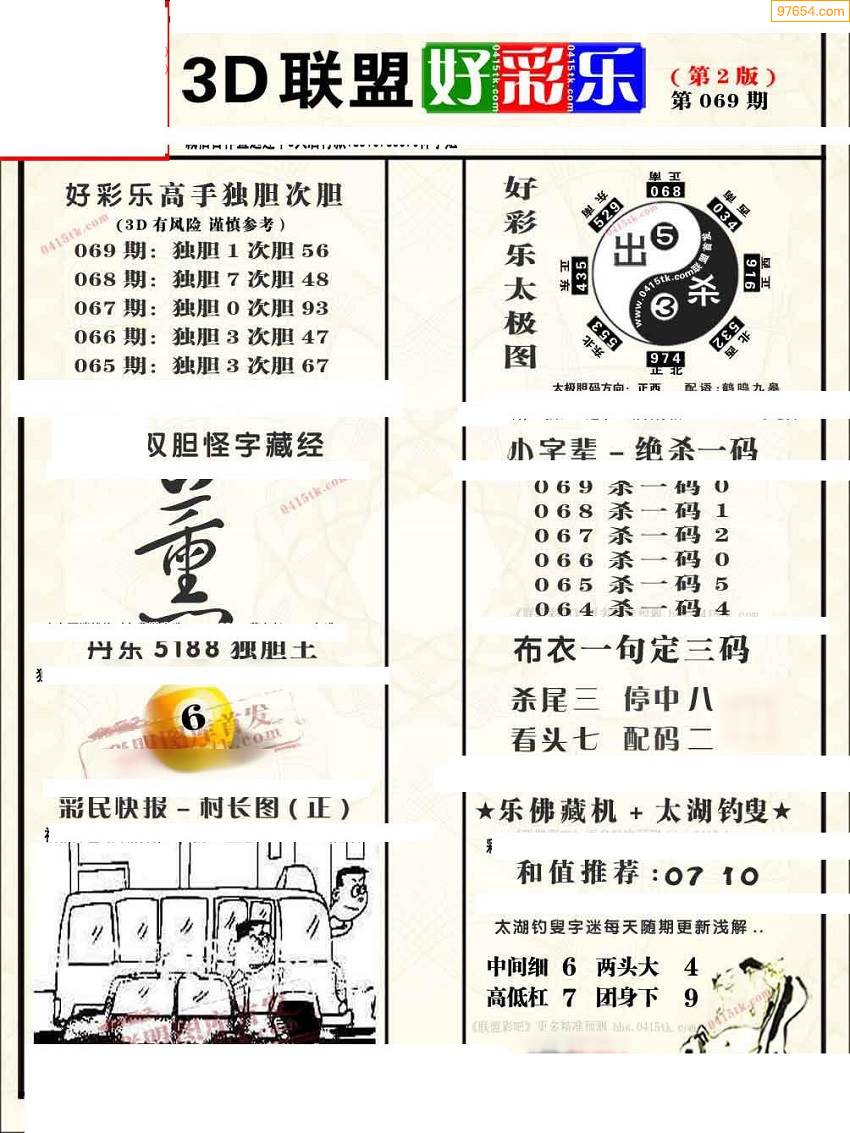 97654.com
3D联盟好彩乐
(第2版)
第069期
好彩乐高手独胆次胆
(3D有风险 谨慎参考)
069期：独胆1次胆56
068期：独胆7次胆48
067期：独胆0次胆93
066期：独胆3次胆47
065期：独胆3次胆67
0415tk.com
双胆怪字藏经
薰
0415tk.com
丹东5188独胆王
6
彩民快报–村长图(正)
好彩乐太极图
正南
068
东南
529
西南
034
正东
435
正西
916
东北
553
西北
532
974
正北
出5
杀3
www.0415tk.com联盟首发
太极胆码方向：正西 配语:鹤鸣九皋
小字辈–绝杀一码
069杀一码0
068杀一码1
067杀一码2
066杀一码0
065杀一码5
064杀一码4
布衣一句定三码
杀尾三 停中八
看头七 配码二
★乐佛藏机+太湖钓叟★
和值推荐:07 10
太湖钓叟字迷每天随期更新浅解..
中间细 6 两头大 4
高低杠 7 团身下 9
《联盟彩吧》更多精准预测 bbs.0415tk.com
0415tk.com